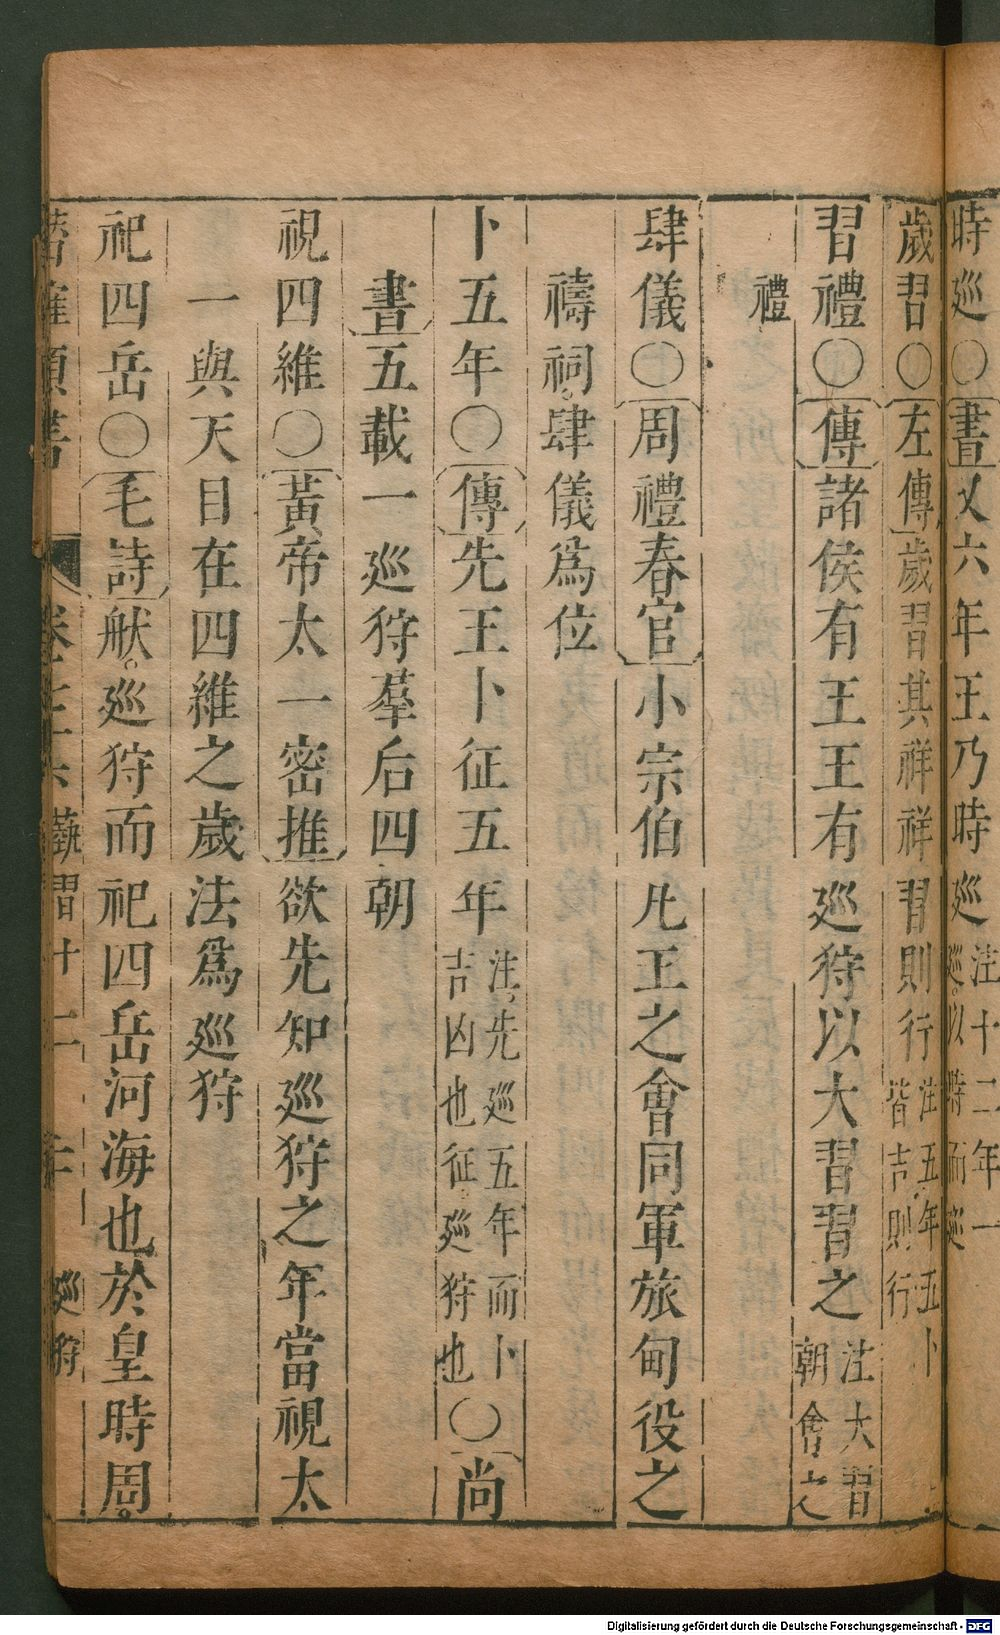 時廵〇書又六年王乃時廵注十二年一廵以時而廵
歲習〇左傳歲習其祥祥習則行注五年五卜皆吉則行
習禮〇傳諸侯有王王有廵狩以大習習之注大習朝會之
禮
肆儀〇周禮春官小宗伯凡王之會同軍旅甸役之
禱祠肆儀爲位
卜五年〇傳先王卜征五年注先廵五年而卜吉凶也征廵狩也〇尚
書五載一廵狩羣后四朝
視四維〇黃帝太一密推欲先知廵狩之年當視太
一與天目在四維之歲法爲廵狩
祀四岳〇毛詩般廵狩而祀四岳河海也於皇時周
廵狩
Digitalisierung gefördert durch die Deutsche Forschungsgemeinschaft - DFG